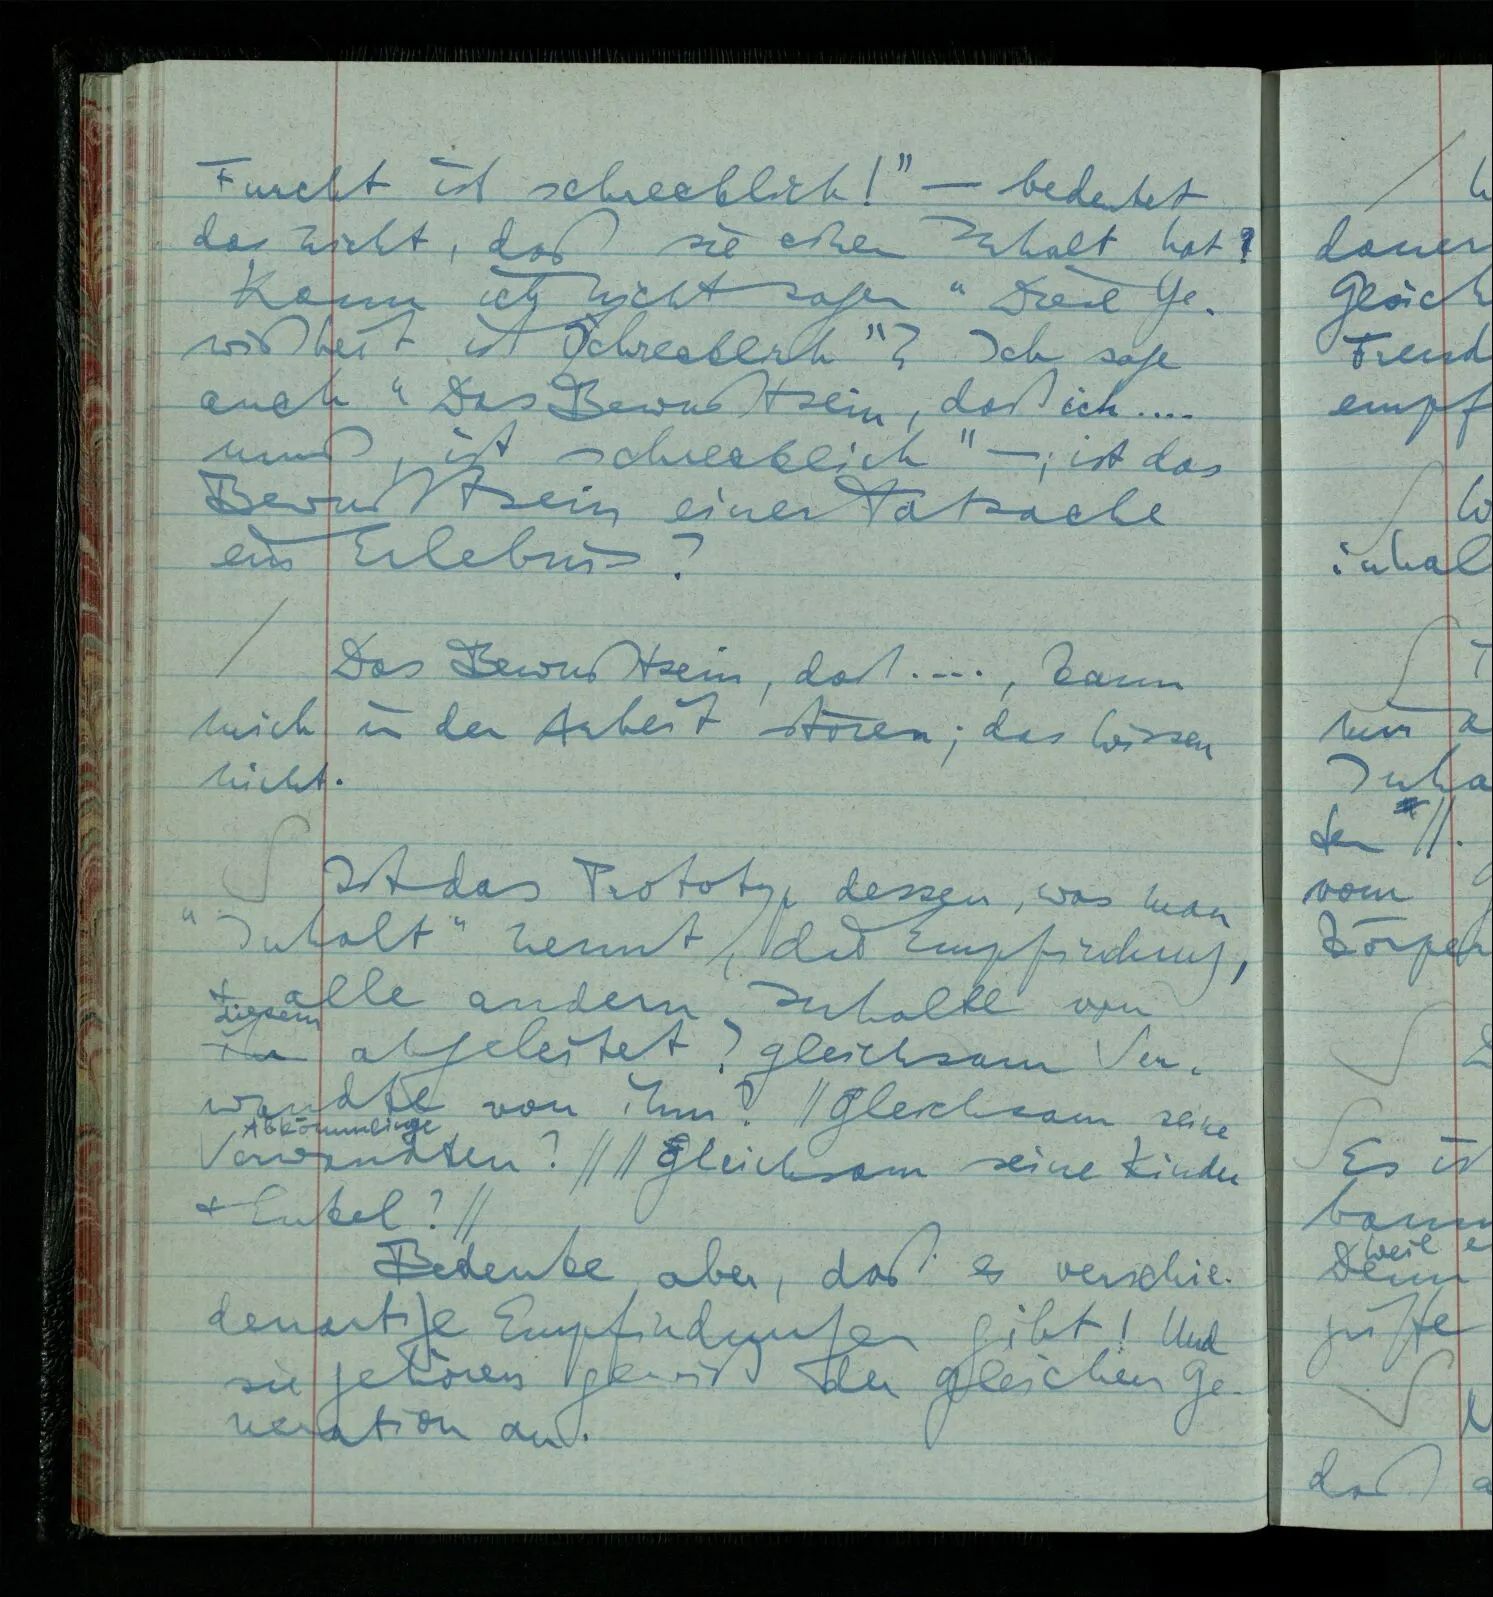 Furcht ist schrecklich!" — bedeutet
das nicht, daß sie einen Inhalt hat?
Kann ich nicht sagen "Diese Ge-
wißheit ist schrecklich"? Ich sage
auch "Das Bewußtsein, daß ich ....
muß, ist schrecklich" —; ist das
Bewußtsein einer Tatsache
ein Erlebnis?
/ Das Bewußtsein, daß ...., kann
mich in der Arbeit stören; das Wissen
nicht.
∫ Ist das Prototyp dessen, was man
"Inhalt" nennt, die Empfindung,
+ alle andern Inhalte von
diesem
ihr abgeleitet? gleichsam Ver-
wandte von ihm? // Gleichsam seine
Abkömmlinge
Verwandten? // // Gleichsam seine Kinder
+ Enkel? //
Bedenke aber, daß es verschie-
denartige Empfindungen gibt! Und
sie gehören gewiß der gleichen Ge-
neration an.
/
dauer
Gleich
Fremd
empf
inhal
Inha
ten //.
vom
Körper
Es is
weil e
Denn
daß a